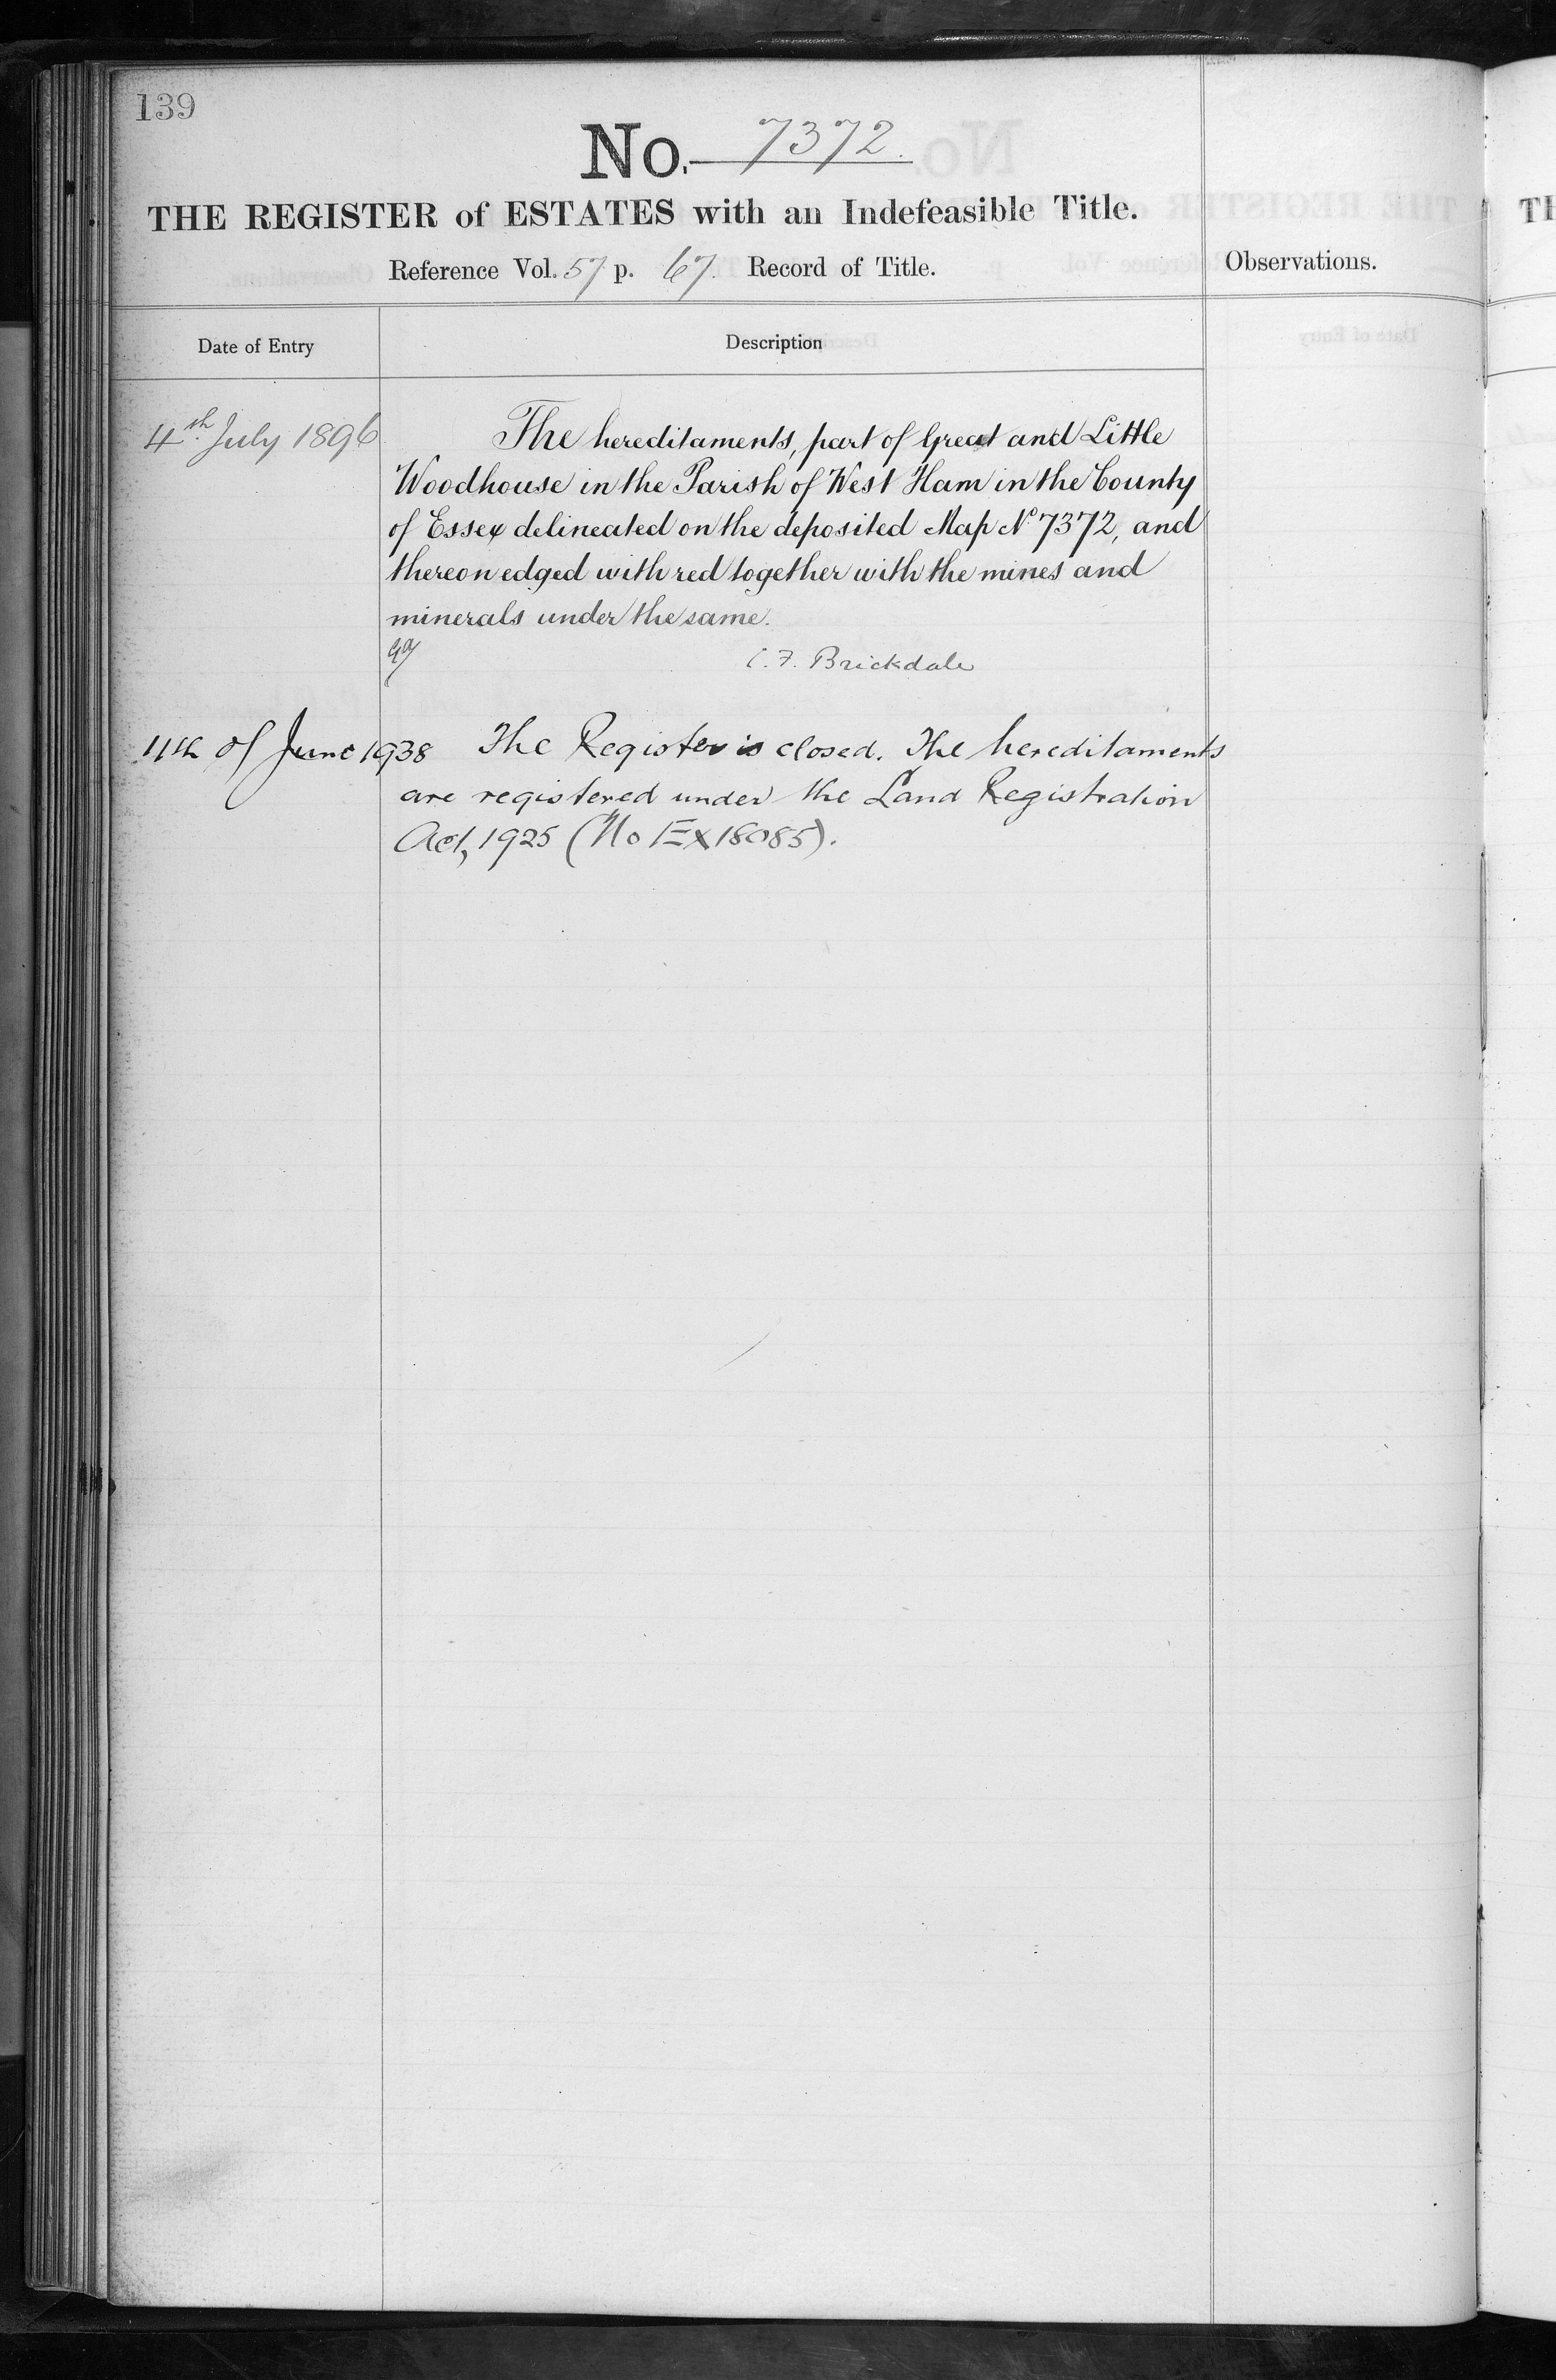 139
No. 7372.
THE REGISTER of ESTATES with an Indefeasible Title.
Reference Vol. 57 p. 67. Record of Title.
Observations.
Date of Entry
Description
4th. July 1896
The hereditaments, part of Great and Little
Woodhouse in the Parish of West Ham in the County
of Essex delineated on the deposited Map No 7372, and
thereon edged with red together with the mines and
minerals under the same.
C. F. Brickdale
11th of June 1938
The Register is closed. The hereditaments
are registered under the Land Registration
Act, 1925 (No EX18085).